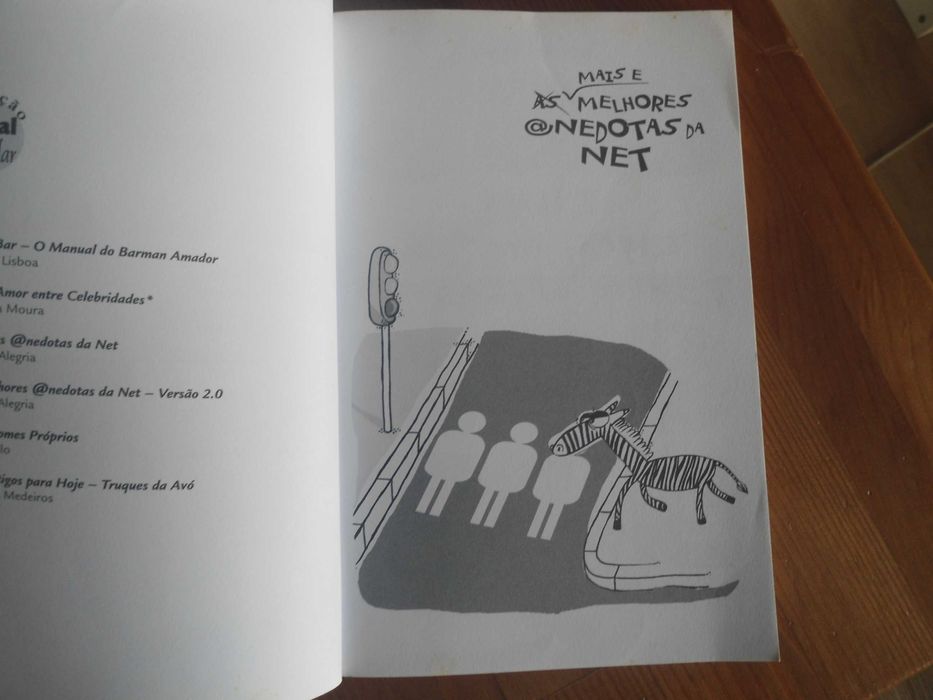 ção
al
lar
Bar – O Manual do Barman Amador
Lisboa
Amor entre Celebridades*
Moura
s @nedotas da Net
Alegria
hores @nedotas da Net – Versão 2.0
Alegria
omes Próprios
lo
igos para Hoje – Truques da Avó
Medeiros
MAIS E
AS MELHORES
@NEDOTAS DA
NET